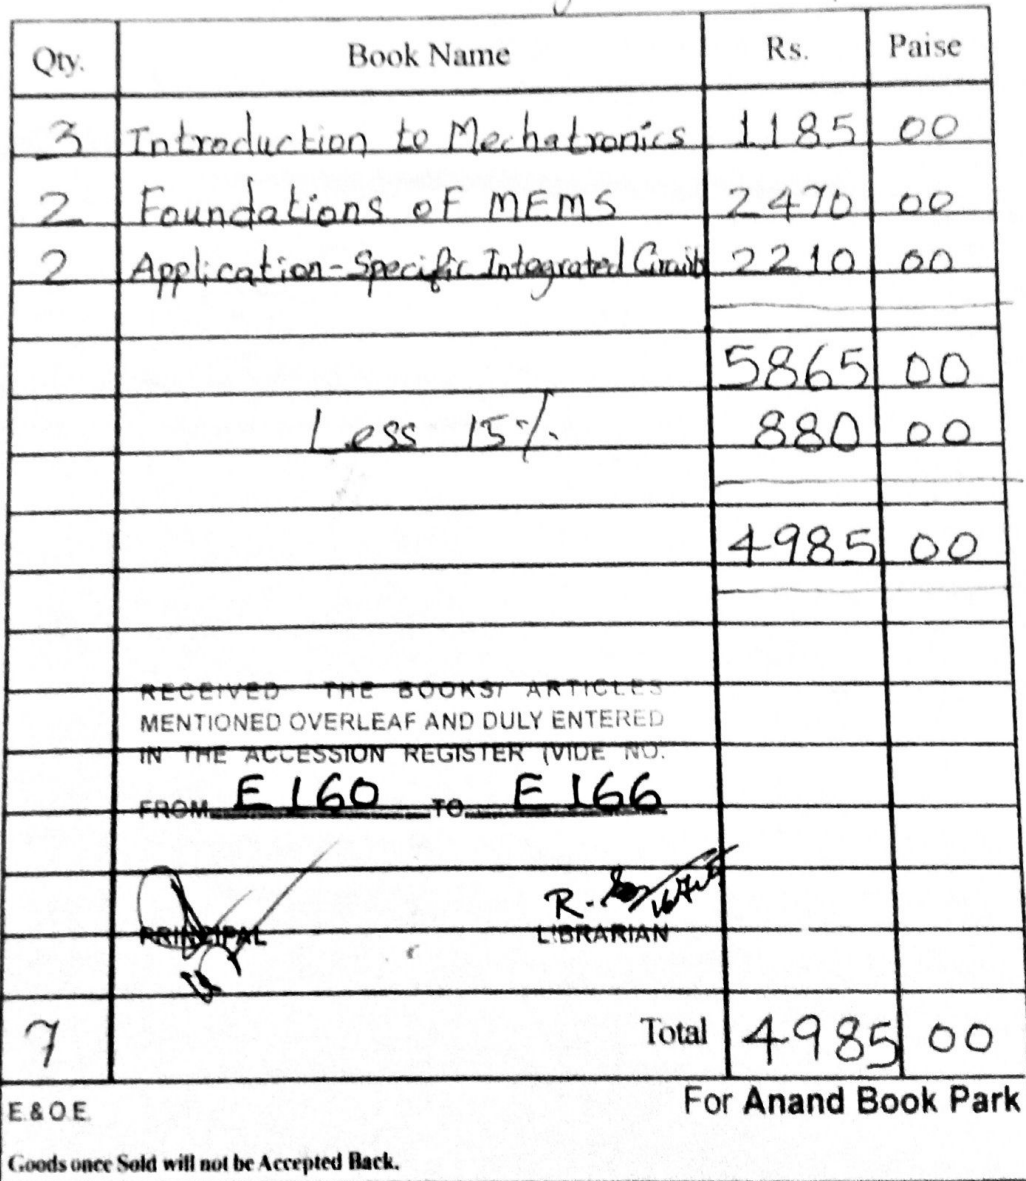 Qty. Book Name Rs. Paise
3 Introduction to Mechatronics 1185 00
2 Foundations of MEMS 2470 00
2 Application-Specific Integrated Circuits 2210 00
5865 00
Less 15% 880 00
4985 00
RECEIVED THE BOOKS/ ARTICLES
MENTIONED OVERLEAF AND DULY ENTERED
IN THE ACCESSION REGISTER (VIDE NO.
FROM E 160 TO E 166
R.
PRINCIPAL LIBRARIAN
7 Total 4985 00
E. & O.E. For Anand Book Park
Goods once Sold will not be Accepted Back.